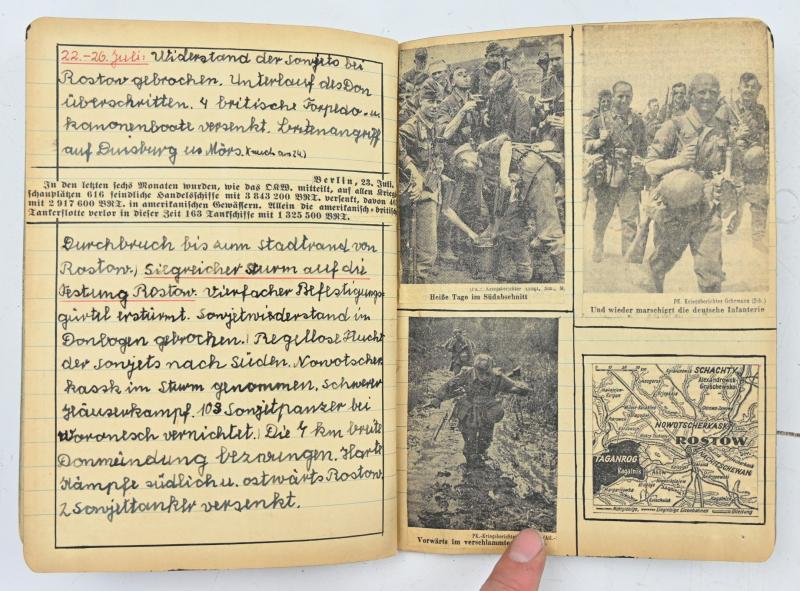 22.-26. Juli: Widerstand der Sowjets bei
Rostow gebrochen. Unterlauf des Don
überschritten. 4 britische Torpedo- u.
kanonenboote versenkt. Britenangriff
auf Duisburg u. Mörs.
Berlin, 23. Juli.
In den letzten sechs Monaten wurden, wie das OKW. mitteilt, auf allen
schauplätzen 616 feindliche Handelsschiffe mit 3 843 200 BRT. versenkt, davon
mit 2 917 600 BRT. in amerikanischen Gewässern. Allein die amerikanisch-
Tankerflotte verlor in dieser Zeit 163 Tankschiffe mit 1 325 500 BRT.
Durchbruch bis zum Stadtrand von
Rostow.) Siegreicher Sturm auf die
Festung Rostow. Vierfacher Befestigungs-
gürtel erstürmt. Sowjetwiderstand im
Donbogen gebrochen.) Regellose Flucht
der Sowjets nach Süden. Nowotscher-
kassk im Sturm genommen. Schwerer
Häuserkampf. 103 Sowjetpanzer bei
Woronesch vernichtet.) Die 4 km breite
Donmündung bezwungen. Harte
Kämpfe südlich u. ostwärts Rostow.
2 Sowjettanker versenkt.
Heiße Tage im Südabschnitt
PK. Kriegsberichter Gehrmann (Sch.)
Und wieder marschiert die deutsche Infanterie
PK.-Kriegsberichter
Vorwärts im
SCHACHTY
Alexandrowsk-
Gruschewskoi
NOWOTSCHERKASSK
ROSTOW
TAGANROG